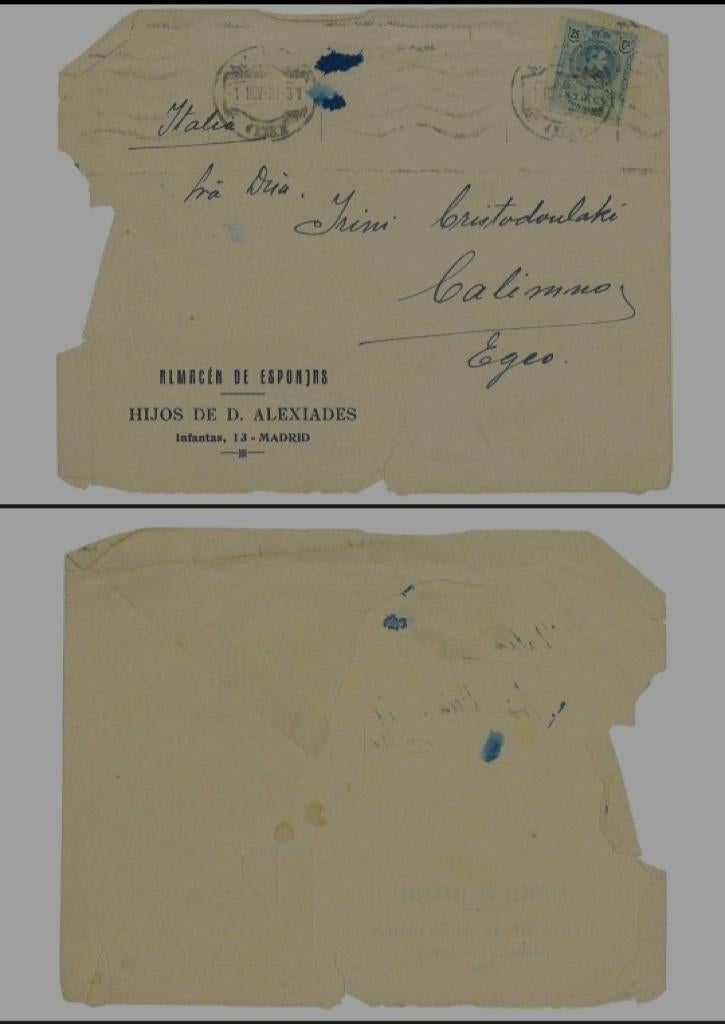 25 25
1 NOV-21 3T
Italia
Irini Cristodoulaki
Calimno
Egeo.
ALMACÉN DE ESPONJAS
HIJOS DE D. ALEXIADES
Infantas, 13 - MADRID